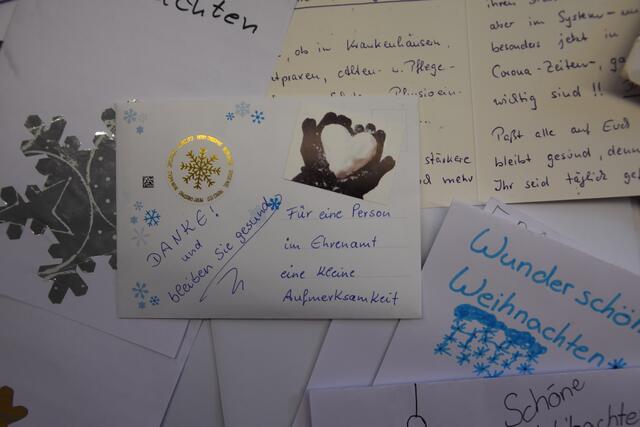 achten
, ob in Krankenhäusern,
tpraxen, Alten- u. Pflege-
stärkere
nd mehr
aber im System- u
besonders jetzt in
Corona-Zeiten-, ga
wichtig sind !!
Paßt alle auf Euch
bleibt gesund, denn
Ihr seid täglich ge
DANKE!
und
bleiben Sie gesund
Für eine Person
im Ehrenamt
eine kleine
Aufmerksamkeit
Wunderschön
Weihnachten
Schöne